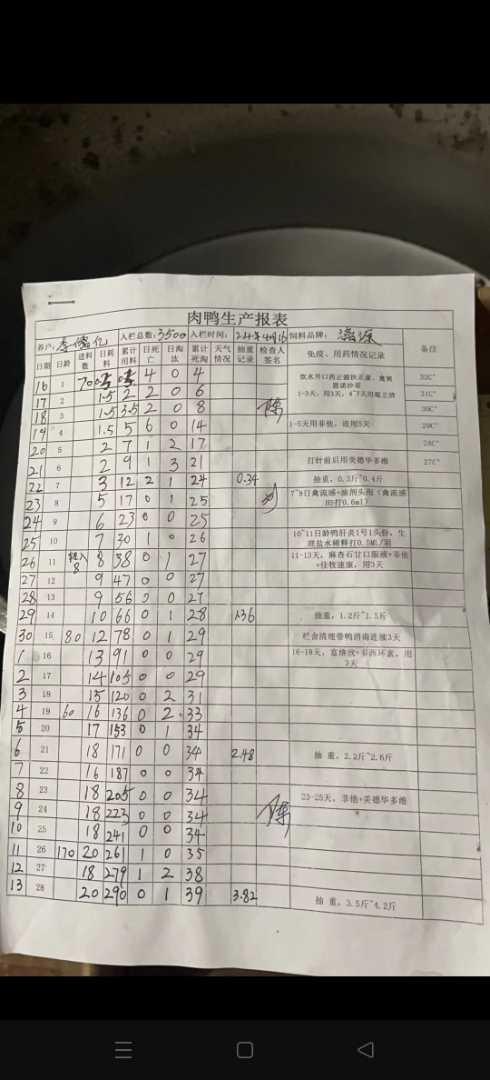 肉鸭生产报表
养户: 入栏总数: 3500 入栏时间: 24年4月16 饲料品牌:
日期 日龄 进料数 日耗料 累计用料 日死亡 日淘汰 累计死淘 天气情况 抽重记录 检查人签名 免疫、用药情况记录 备注
16 1 700 4 0 4 32C°
17 2 1.5 2 2 0 6 1-3天，用3天，4~7天用电立清 31C°
18 3 1.5 3.5 2 0 8 30C°
19 4 1.5 5 6 0 14 1-5天用非他，连用5天 29C°
20 5 2 7 1 2 17 28C°
21 6 2 9 1 3 21 打针前后用美德华多维 27C°
22 7 3 12 2 1 24 0.34 抽重，0.3斤~0.4斤
23 8 5 17 0 1 25 7~9日禽流感+油剂头孢（禽流感
24 9 6 23 0 0 25
25 10 7 30 1 0 26 10~11日龄鸭肝炎1号1头份，生理盐水稀释打0.5ML/羽
26 11 8 8 38 0 1 27 11-13天，麻杏石甘口服液+非他
27 12 9 47 0 0 27
28 13 9 56 0 0 27
29 14 10 66 0 1 28 1.36 抽重，1.2斤~1.5斤
30 15 80 12 78 0 1 29 栏舍清理带鸭消毒连续3天
1 16 13 91 0 0 29
2 17 14 105 0 0 29
3 18 15 120 0 2 31
4 19 60 16 136 0 2 33
5 20 17 153 0 1 34
6 21 18 171 0 0 34 2.48 抽 重，2.2斤~2.6斤
7 22 16 187 0 0 34
8 23 18 205 0 0 34 23-25天，非他+美德华多维
9 24 18 223 0 0 34
10 25 18 241 0 0 34
11 26 170 20 261 1 0 35
12 27 18 279 1 2 38
13 28 20 290 0 1 39 3.82 抽 重，3.5斤~4.2斤